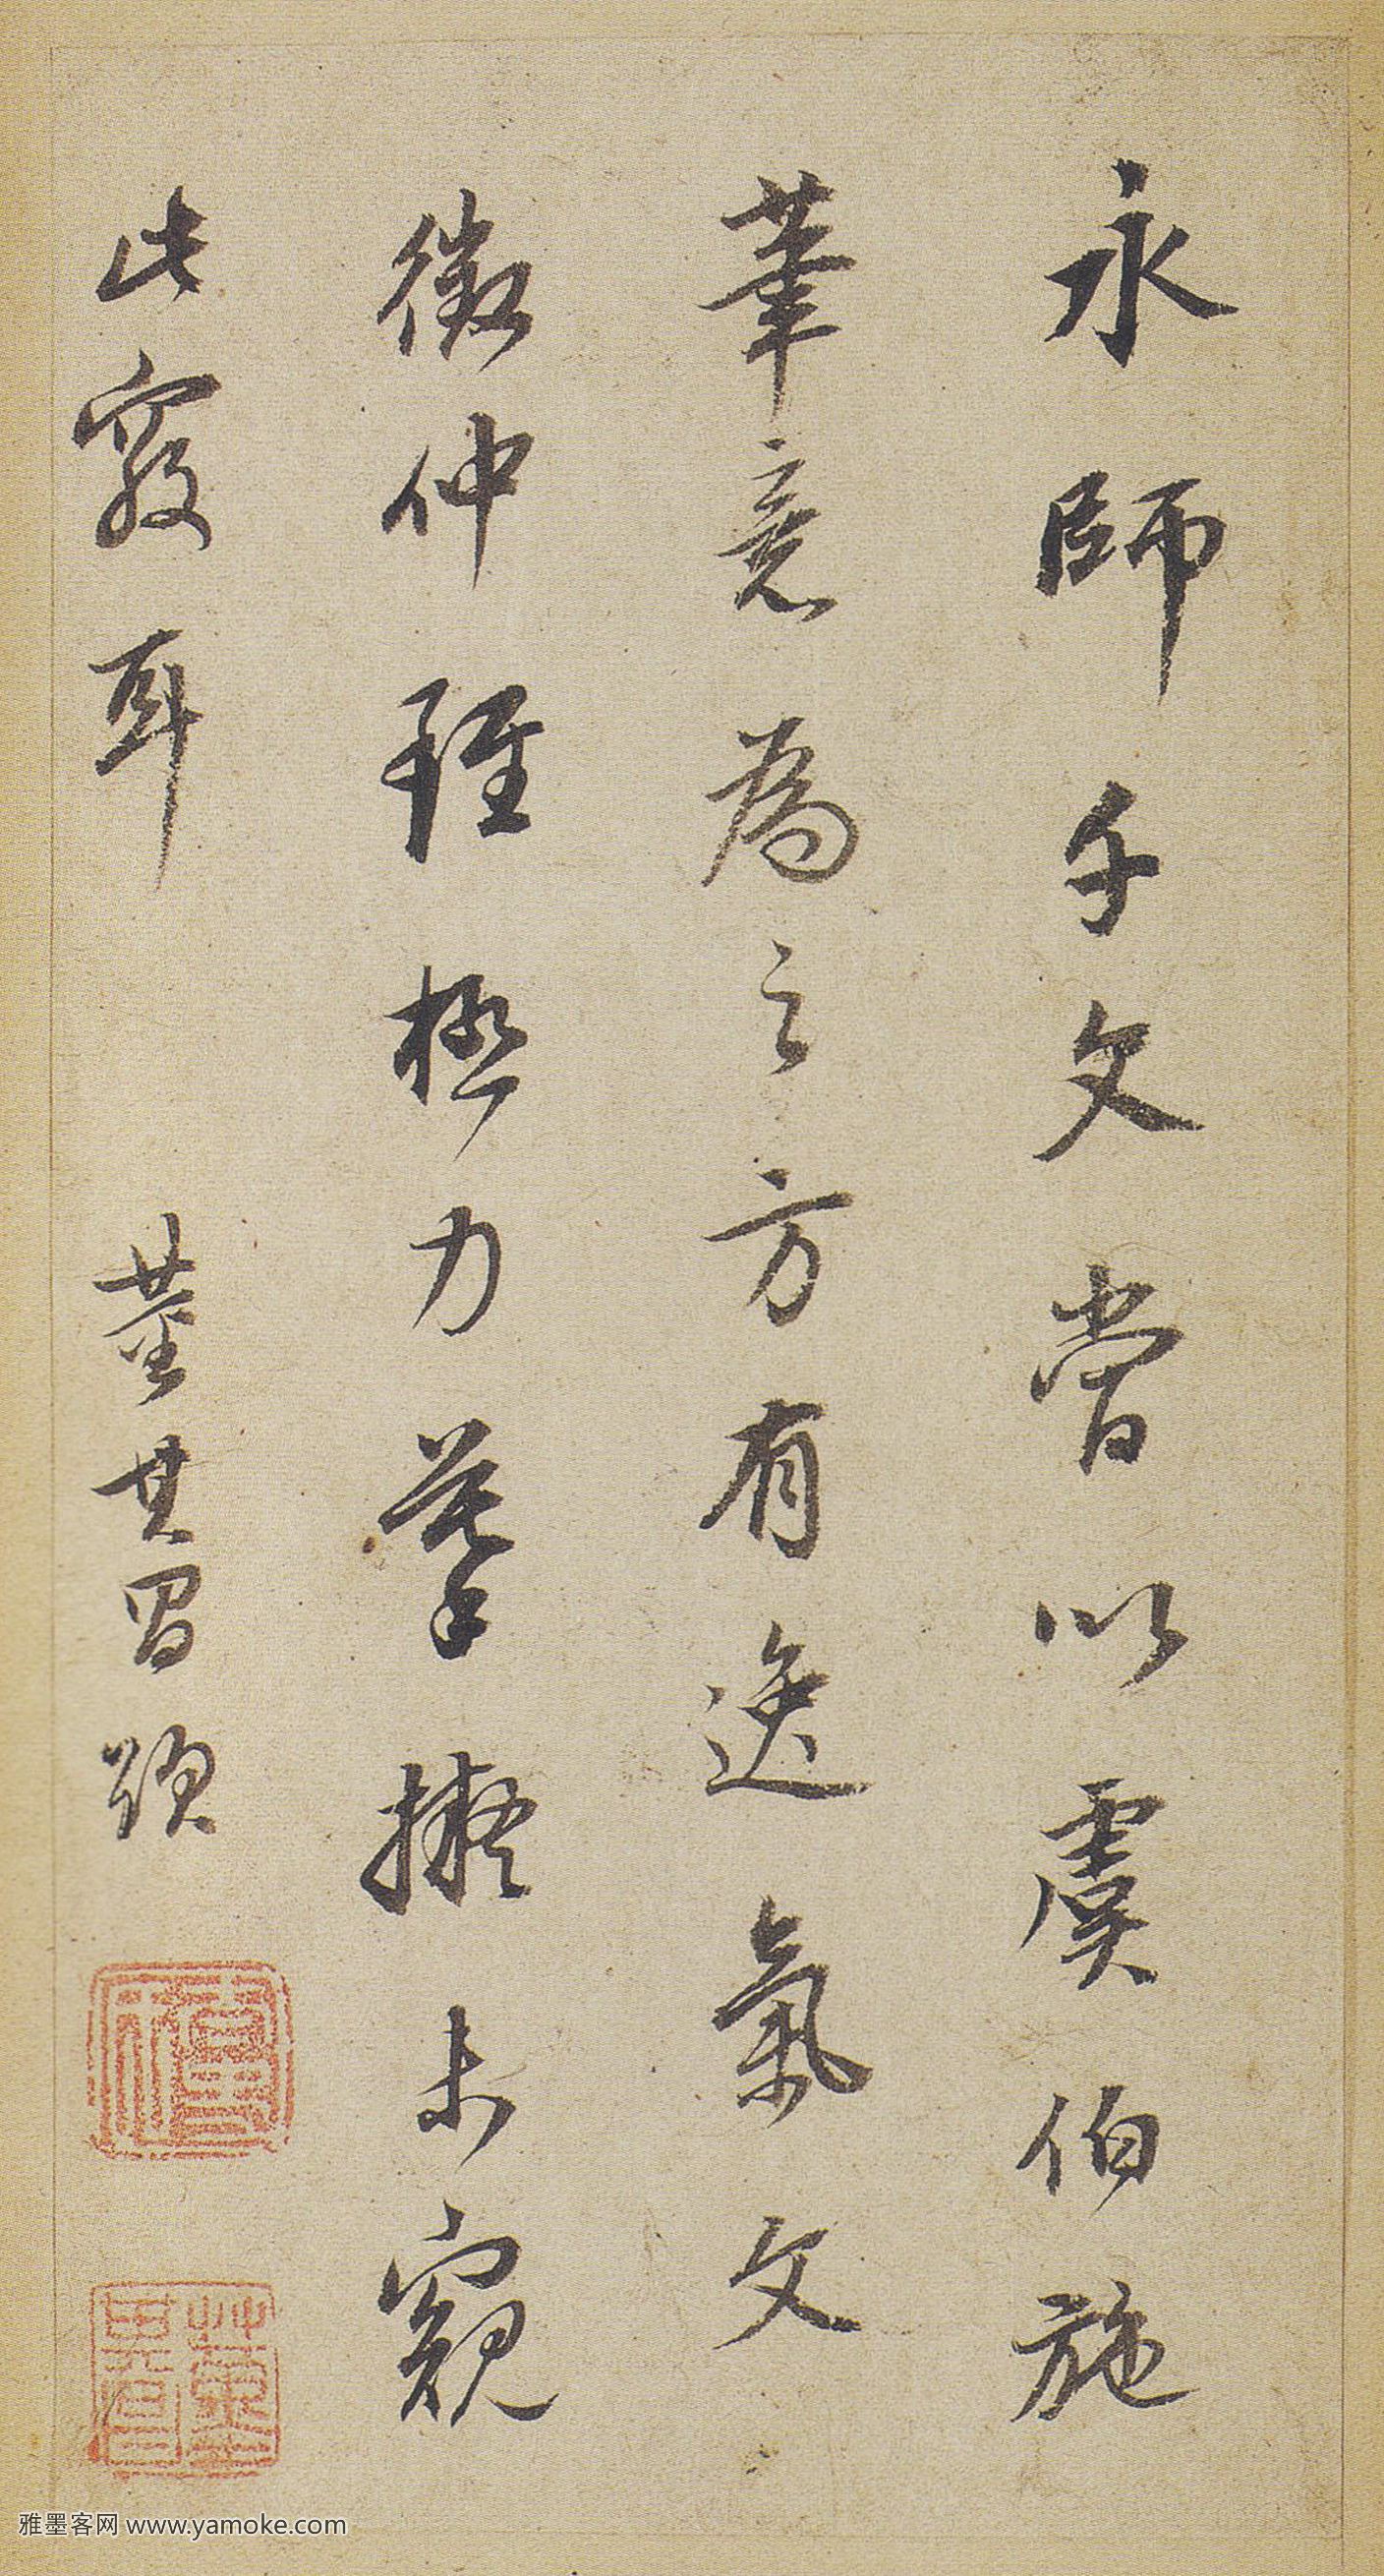 永師千文嘗以虞伯施
筆意為之方有逸氣文
徵仲雖極力摹擬未窺
此竅耳
董其昌題
雅墨客网 www.yamoke.com